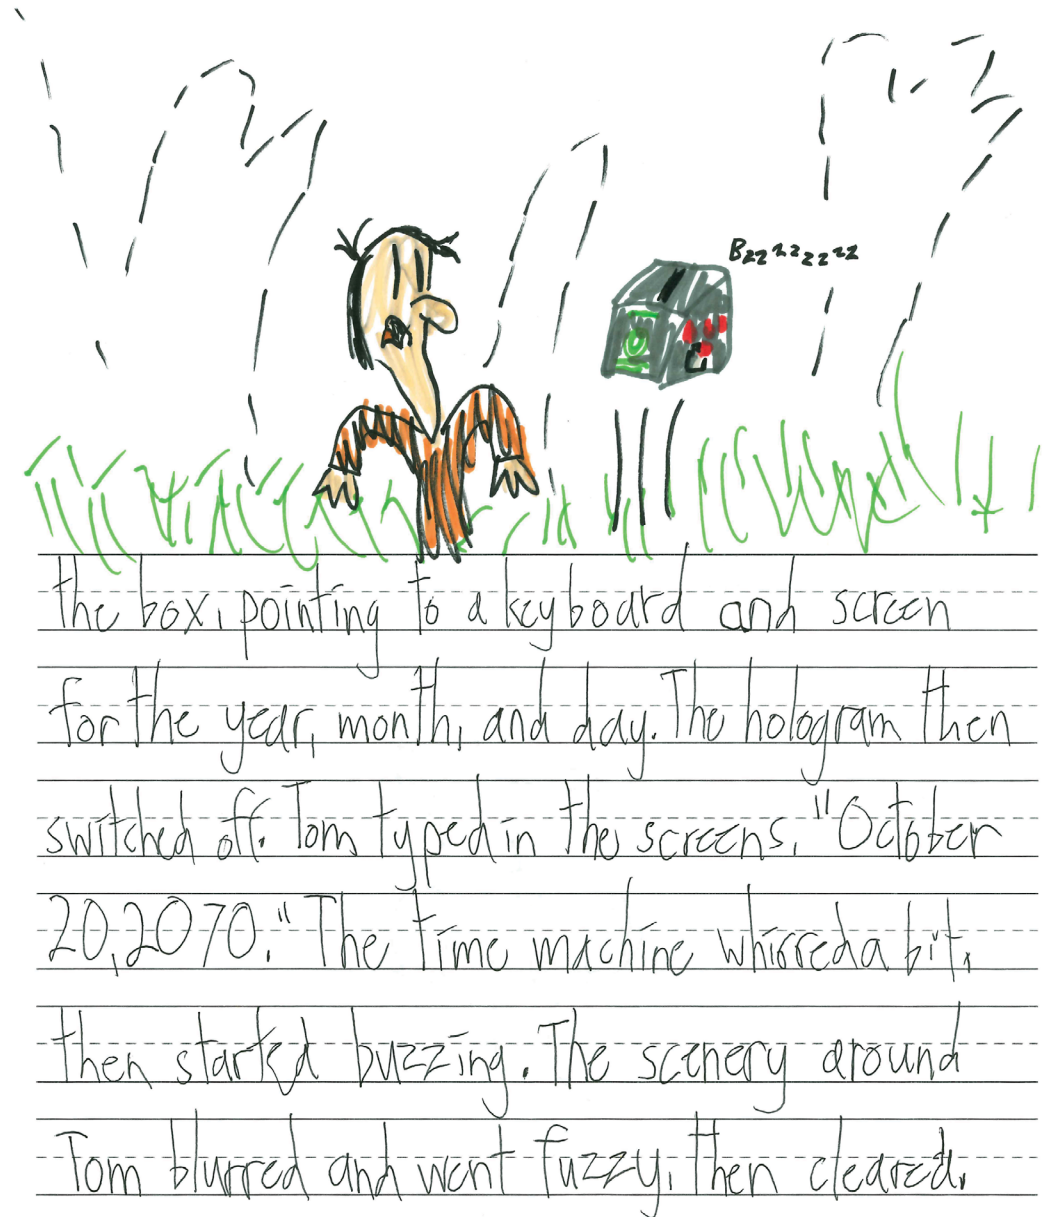 Bzzzzzzzz
the box, pointing to a keyboard and screen
for the year, month, and day. The hologram then
switched off. Tom typed in the screens, "October
20, 2070." The time machine whirred a bit,
then started buzzing. The scenery around
Tom blurred and went fuzzy, then cleared.